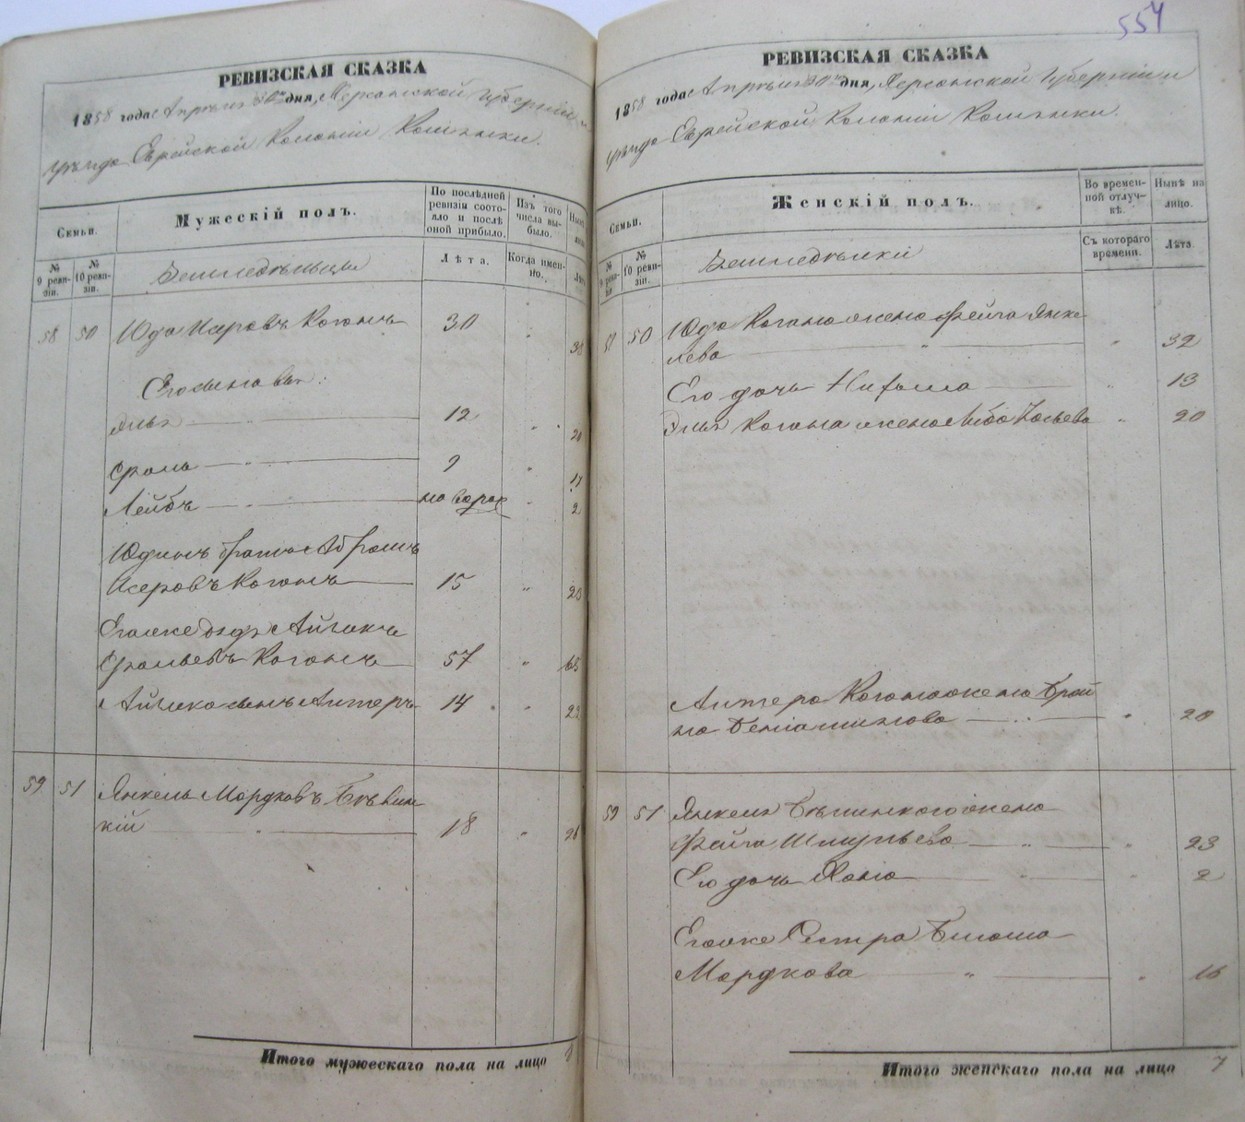 554
РЕВИЗСКАЯ СКАЗКА
1858 года Апреля 30 дня, Херсонской Губерніи и
уѣзда Еврейской Колоніи
Семьи.
Мужескій полъ.
По послѣдней ревизіи состояло и послѣ оной прибыло.
Изъ того числа выбыло.
№ 9 ревизіи.
№ 10 ревизіи.
Земледѣльцы
Лѣта.
Когда именно.
58 50 Юда Исеровъ Коганъ 30 " 38
Его сыновья:
Эля " 12 " 20
Сроль " 9 " 17
Лейбъ " " 2
Юдинъ братъ Абрамъ
Исеровъ Коганъ 15 " 23
Его же дядя Айзикъ
Срольевъ Коганъ 57 " 65
Айзика сынъ Антеръ 14 " 22
59 51 Янкель Мордковъ
кій " 18 " 26
Итого мужескаго пола на лицо 8
РЕВИЗСКАЯ СКАЗКА
1858 года Апреля 30 дня, Херсонской Губерніи и
уѣзда Еврейской Колоніи
Семьи.
Женскій полъ.
Во временной отлучкѣ.
Нынѣ на лицо.
№ 9 ревизіи.
№ 10 ревизіи.
Земледѣлки
Съ котораго времени.
Лѣта.
58 50 Юды Когана жена Фейга Янке
лева " " 32
Его дочь " 13
Эли Когана жена Либа " 20
Антера Когана жена Брай
на Беніаминова " " 20
59 51 Янкеля жена
Фейга Шмульева " " 23
Его дочь Хана " " 2
Его же Сестра
Мордкова " " 16
Итого женскаго пола на лицо 7